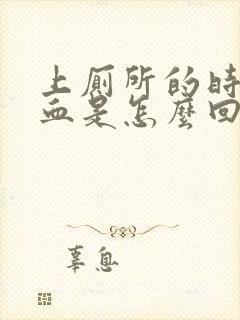 上厕所的时
血是怎麼回
辜息